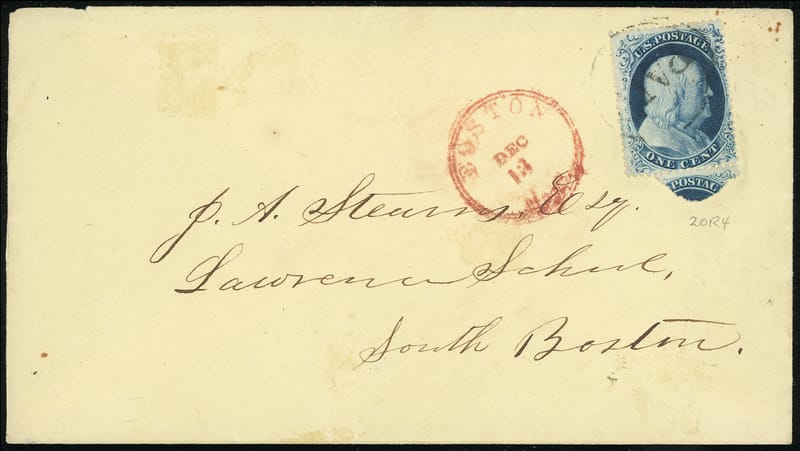 U.S. POSTAGE
PAID
ONE CENT
POSTAG
BOSTON
DEC
13
20R4
J. A. Stearns, Esq.
Lawrence School,
South Boston.